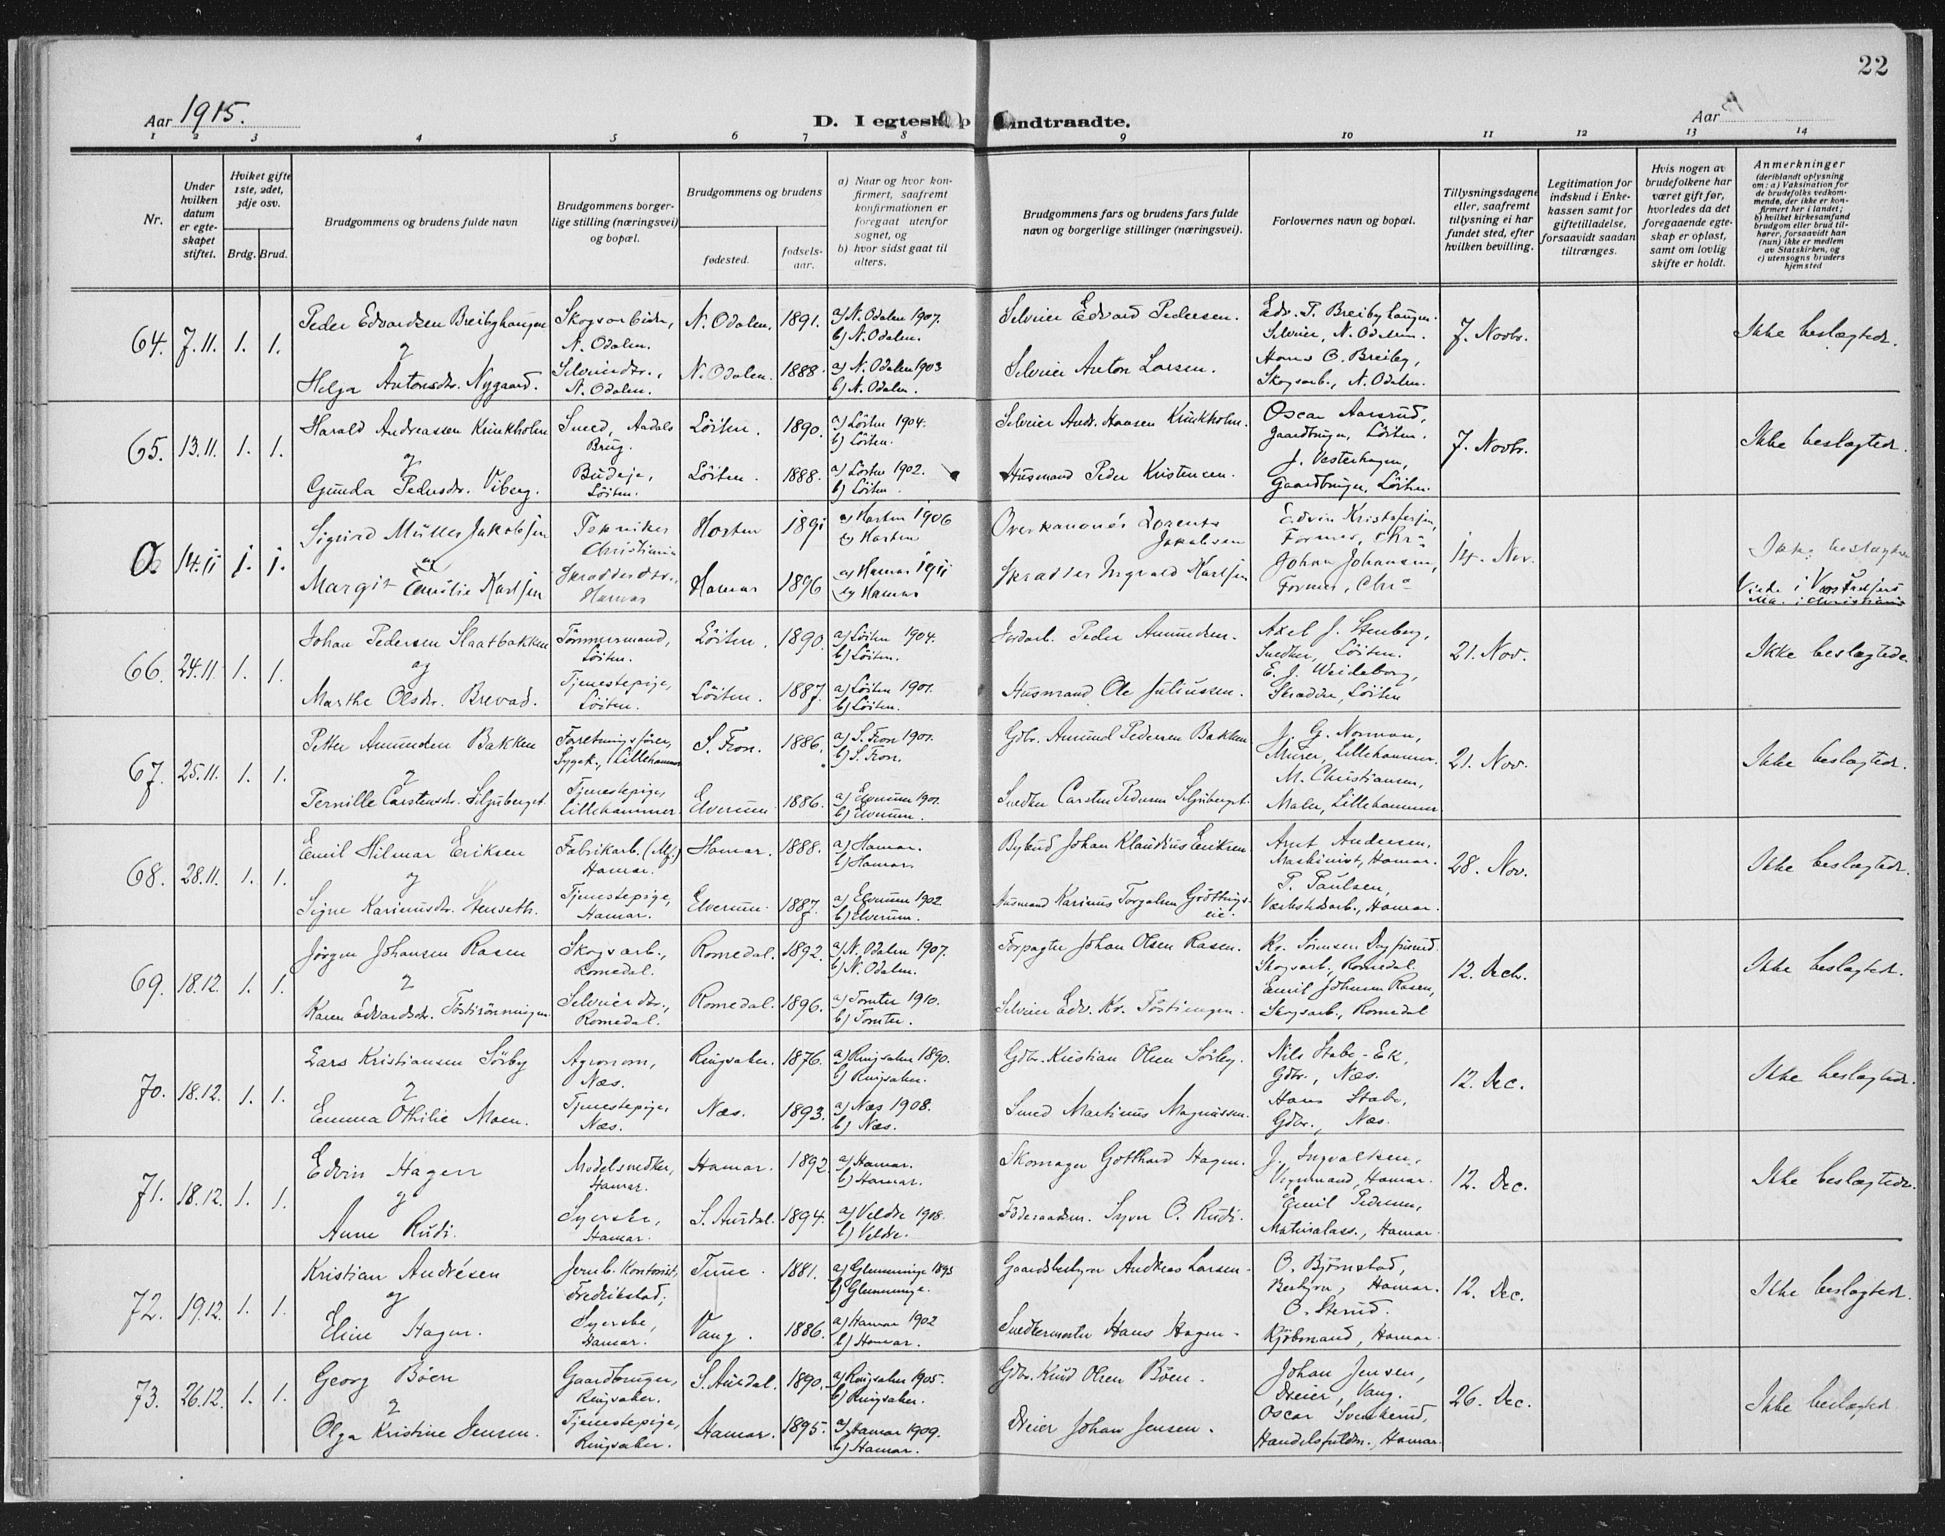 22
Aar 1915.
D. I egteskap indtraadte.
Aar
1 2 3 4 5 6 7 8 9 10 11 12 13 14
Nr.
Under hvilken datum er egteskapet stiftet.
Hvilket gifte 1ste, 2det, 3dje osv.
Brdg. Brud.
Brudgommens og brudens fulde navn
Brudgommens borgerlige stilling (næringsvei) og bopæl.
Brudgommens og brudens
fødested.
fødsels-aar.
a) Naar og hvor konfirmert, saafremt konfirmationen er foregaat utenfor sognet, og
b) hvor sidst gaat til alters.
Brudgommens fars og brudens fars fulde navn og borgerlige stillinger (næringsvei).
Forlovernes navn og bopæl.
Tillysningsdagene eller, saafremt tillysning ei har fundet sted, efter hvilken bevilling.
Legitimation for indskud i Enkekassen samt for giftetilladelse, forsaavidt saadan tiltrænges.
Hvis nogen av brudefolkene har været gift før, hvorledes da det foregaaende egteskap er opløst, samt om lovlig skifte er holdt.
Anmerkninger (deriblandt oplysning om: a) Vaksination for de brudefolks vedkommende, der ikke er konfirmert her i landet; b) hvilket kirkesamfund brudgom eller brud tilhører, forsaavidt han (hun) ikke er medlem av Statskirken, og c) utensogns bruders hjemsted
64. 7.11. 1. 1. Peder Edvardsen Breibyhaugen Skogsarbeider, N. Odalen. N. Odalen. 1891. a) N. Odalen 1907. b) N. Odalen. Selveier Edvard Pedersen. Edv. P. Breibyhaugen Selveier, N. Odalen. 7. Novbr. Ikke beslægtede.
og
Helga Antonsdtr. Nygaard. Selveierdtr., N. Odalen. N. Odalen. 1888. a) N. Odalen 1903 b) N. Odalen. Selveier Anton Larsen. Hans O. Breiby, Skogsarb., N. Odalen.
65. 13.11. 1. 1. Harald Andreassen Krinkholm Smed, Aadals Brug. Løiten. 1890. a) Løiten 1904. b) Løiten. Selveier Andr. Hansen Krinkholm. Oscar Aarsrud, Gaardbruger, Løiten. 7. Novbr. Ikke beslægtede.
og
Gunda Pedersdtr. Viberg. Budeje, Løiten. Løiten. 1888. a) Løiten 1902. b) Løiten. Husmand Peder Kristensen. J. Vesterhagen, Gaardbruger, Løiten.
14.11 1. 1. Sigurd Müller Jakobsen Tekniker Christiania Horten 1891 a) Horten 1906 b) Horten Overkanoner Lorents Jakobsen Edvin Kristofersen, Former, Chra 14. Nov. Ikke beslægtede
og
Margit Emilie Karlsen Skrædderdtr., Hamar Hamar 1896 a) Hamar 1911 b) Hamar Skrædder Ingvald Karlsen Johan Johansen, Former, Chra Viede i Christiania
66. 24.11. 1. 1. Johan Pedersen Slaatbakken Tømmermand, Løiten. Løiten. 1890. a) Løiten 1904. b) Løiten. Jordarb. Peder Amundsen. Axel J. Stenberg, Snedker, Løiten. 21. Nov. Ikke beslægtede
og
Marthe Olsdtr. Brevad. Tjenestepige, Løiten. Løiten. 1887. a) Løiten 1901. b) Løiten. Husmand Ole Juliussen. E. J. Weideborg, Skrædder, Løiten
67. 25.11. 1. 1. Petter Amundsen Bakken Forretningsfører, Sygek., Lillehammer S. Fron. 1886. a) S. Fron 1901. b) S. Fron. Gdbr. Amund Pedersen Bakken J. G. Norman, Murer, Lillehammer. 21. Nov. Ikke beslægtede.
og
Pernille Carstensdtr. Siljuberget. Tjenestepige, Lillehammer. Elverum 1886. a) Elverum 1901. b) Elverum. Snedker Carsten Pedersen Siljuberget. M. Christiansen, Maler, Lillehammer
68. 28.11. 1. 1. Emil Hilmar Eriksen Fabrikarb. Hamar. Hamar. 1888. a) Hamar. b) Hamar. Bybud Johan Klaudius Eriksen Arnt Andersen, Maskinist, Hamar. 28. Nov. Ikke beslægtede.
og
Signe Karinusdtr. Stenseth. Tjenestepige, Hamar. Elverum. 1887. a) Elverum 1902 b) Elverum. Husmand Karinus Torgalsen Grøttingseie. P. Paulsen, Verkstedsarb., Hamar.
69. 18.12. 1. 1. Jørgen Johansen Rasen Skogsarb., Romedal. Romedal. 1892. a) N. Odalen 1907. b) N. Odalen. Forpagter Johan Olsen Rasen. Kr. Simensen Dagfinrud Skogsarb., Romedal. 12. Decb. Ikke beslægtede.
og
Karen Edvardsdtr. Tøstirønningen. Selveierdtr., Romedal. Romedal. 1896. a) Tomter 1910. b) Tomter. Selveier Edv. Kr. Tøstiengen. Emil Johnsen Rasen, Skogsarb., Romedal
70. 18.12. 1. 1. Lars Kristiansen Sørby Agronom, Næs. Ringsaker. 1876. a) Ringsaker 1890. b) Ringsaker. Gdbr. Kristian Olsen Sørby. Nils Stabe-Ek, Gdbr., Næs. 12. Dec. Ikke beslægtede.
og
Emma Othilie Moen. Tjenestepige, Næs. Næs. 1893. a) Næs 1908. b) Næs. Smed Martinus Magnussen. Hans Stabe, Gdbr., Næs.
71. 18.12. 1. 1. Edvin Hagen Modelsnedker, Hamar. Hamar. 1892 a) Hamar. b) Hamar. Skomager Gotthard Hagen. J. Ingvaldsen, Vognmand, Hamar. 12. Dec. Ikke beslægtede.
og
Anne Rudi. Syerske, Hamar. S. Aurdal. 1894. a) Veldre 1908. b) Veldre. Føderaadsm. Syver O. Rudi. Emil Pedersen, Materialass., Hamar.
72. 19.12. 1. 1. Kristian Andrésen Jernb. Kontorist, Fredrikstad. Tune. 1881. a) Glemminge 1895 b) Glemminge. Gaardsbestyrer Andreas Larsen. O. Bjørnstad, Bestyrer, Hamar. 12. Dec. Ikke beslægtede.
og
Eline Hagen. Syerske, Hamar. Vang. 1886. a) Hamar 1902 b) Hamar. Snedkermester Hans Hagen. O. Sterud. Kjøbmand, Hamar.
73. 26.12. 1. 1. Georg Bøen Gaardbruger, Ringsaker. S. Aurdal. 1890. a) Ringsaker 1905. b) Ringsaker. Gdbr. Knud Olsen Bøen. Johan Jensen, Dreier, Vang. 26. Dec. Ikke beslægtede.
og
Olga Kristine Jensen. Tjenestepige, Ringsaker. Hamar. 1895. a) Hamar 1909. b) Hamar. Dreier Johan Jensen. Oscar Svenkerud, Handelsfuldm., Hamar.